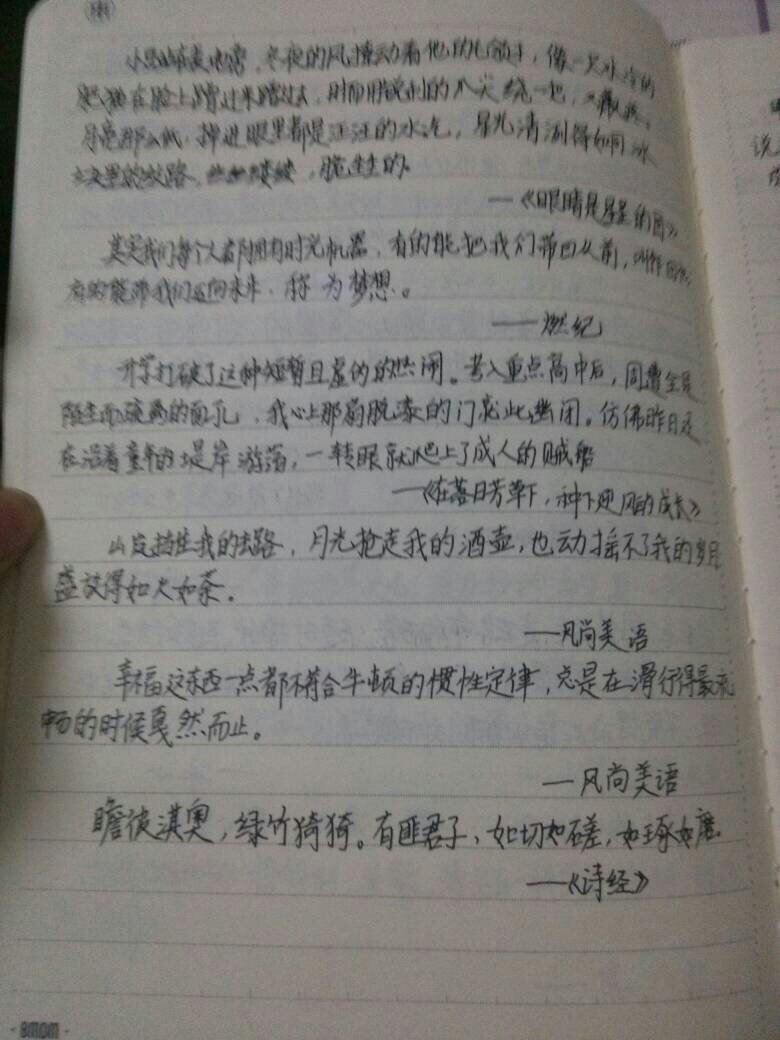 冬夜的风撞动着他的领子，像一只冰冷的
在脸上蹭过来蹭过去，时而用锐利的爪尖挠一把，又
月亮那么低，掉进眼里都是汪汪的水汽，星光清冽得如同冰
里的纹路，脆生生的。
——《眼睛是星星的
其实我们每个人都拥有时光机器，有的能把我们带回从前，叫作
有的能带我们迈向未来，称为梦想。
——燃纪
开学打破了这种短暂且虚伪的热闹。考入重点高中后，周遭全是
陌生而疲惫的面孔，我心上那扇脱漆的门就此幽闭。仿佛昨日还
在沿着童年的堤岸游荡，一转眼就爬上了成人的贼船
——《在落日芳草下，种下迎风的成长》
山岚挡住我的去路，月光抢走我的酒壶，也动摇不了我的岁月
盛放得如火如荼。
——风尚美语
幸福这东西一点都不符合牛顿的惯性定律，总是在滑行得最流
畅的时候戛然而止。
——风尚美语
瞻彼淇奥，绿竹猗猗。有匪君子，如切如磋，如琢如磨
——《诗经》
说